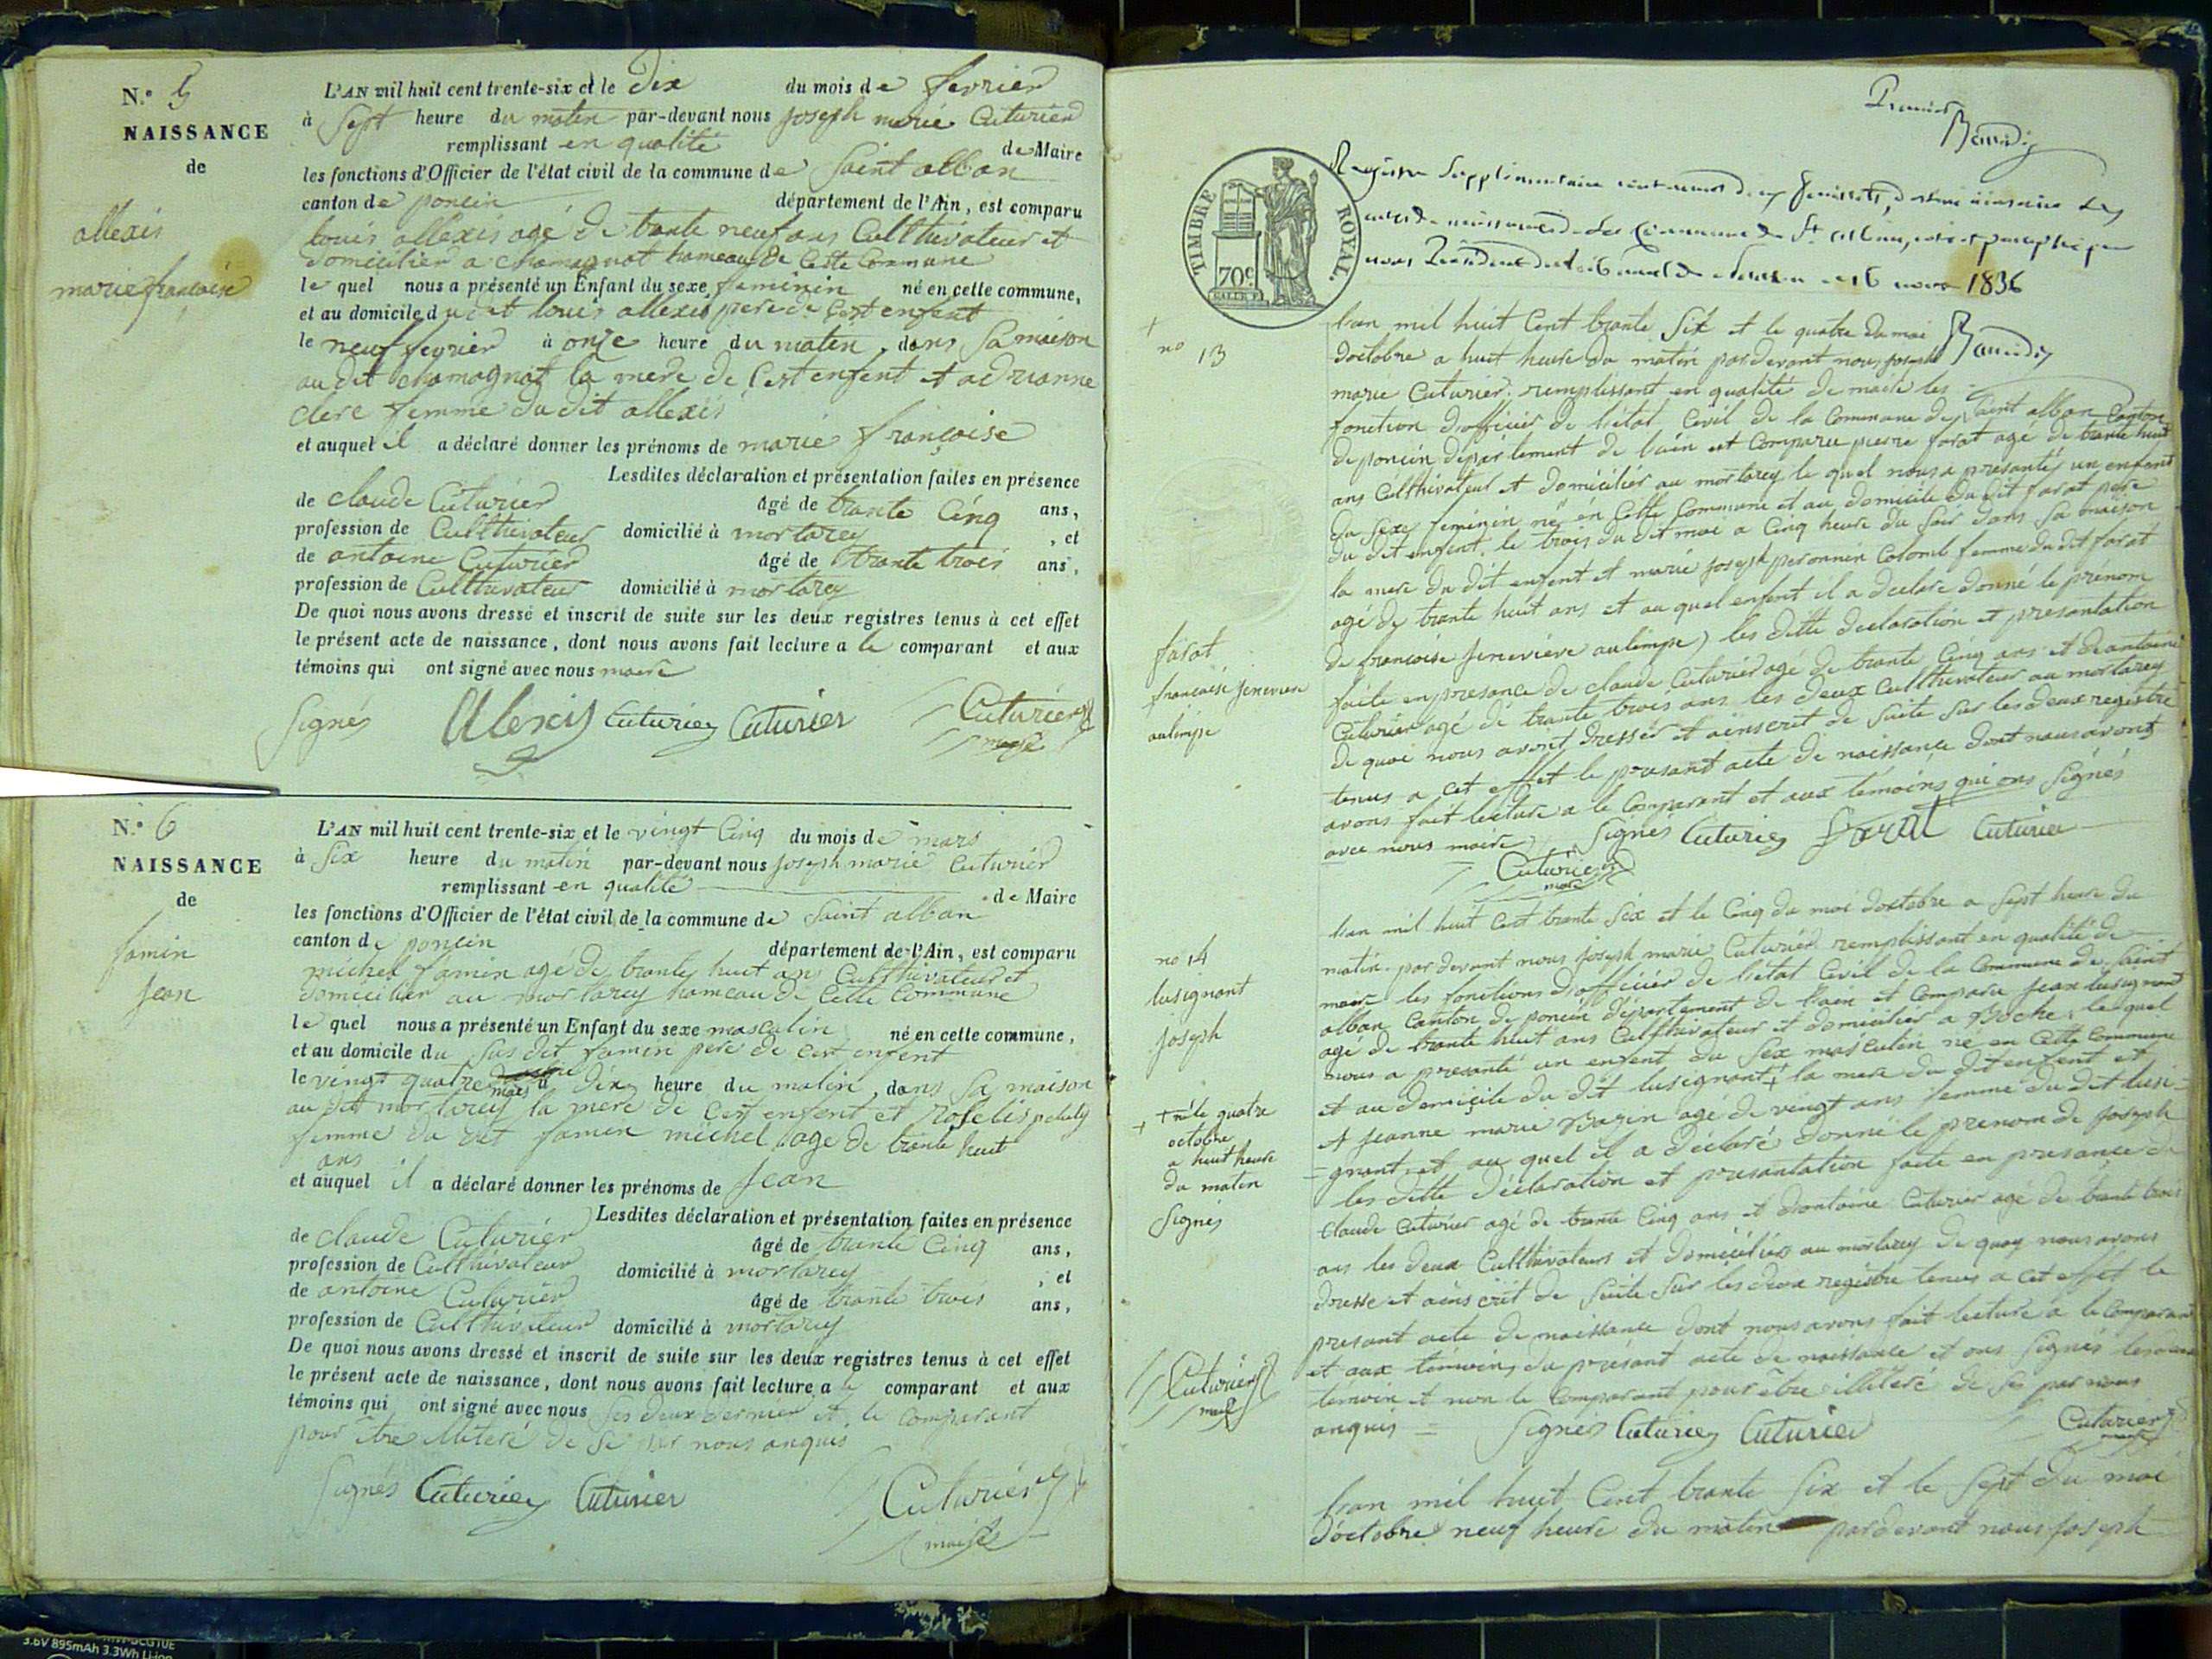 N.° 5
NAISSANCE
de
allexis
marie françoise
L'AN mil huit cent trente-six et le dix du mois de fevrier
à Sept heure du matin par-devant nous joseph marie Cuturier
remplissant en qualité de Maire
les fonctions d'Officier de l'état civil de la commune de Saint alban
canton de poncin département de l'Ain, est comparu
louis allexis agé de trante neuf ans Culthivateur et
domicilier a chamagnat hameau de Cette Commune
le quel nous a présenté un Enfant du sexe feminin né en cette commune,
et au domicile du dit louis allexis pere de Cest enfent
le neuf fevrier à onze heure du matin, dans Sa maison
au dit chamagnat la mere de Cest enfent et adrianne
clerc femme du dit allexis
et auquel il a déclaré donner les prénoms de marie françoise
Lesdites déclaration et présentation faites en présence
de claude Cuturier âgé de trante Cinq ans,
profession de Culthivateur domicilié à mortarey , et
de antoine Cuturier âgé de trante trois ans,
profession de Culthivateur domicilié à mortarey
De quoi nous avons dressé et inscrit de suite sur les deux registres tenus à cet effet
le présent acte de naissance, dont nous avons fait lecture a le comparant et aux
témoins qui ont signé avec nous maire
Signés Alexis Cuturier Cuturier Cuturier
maire
N.° 6
NAISSANCE
de
famin
Jean
L'AN mil huit cent trente-six et le vingt Cinq du mois de mars
à Six heure du matin par-devant nous joseph marie Cuturier
remplissant en qualité de Maire
les fonctions d'Officier de l'état civil de la commune de Saint alban
canton de poncin département de l'Ain, est comparu
michel famin agé de trante huit ans Culthivateur et
domicilier au mortarey hameau de Cette Commune
le quel nous a présenté un Enfant du sexe masculin né en cette commune,
et au domicile du Sus dit famin pere de Cest enfent
le vingt quatre mars à dix heure du matin, dans Sa maison
au dit mortarey la mere de Cest enfent et
femme du dit famin michel agé de trante huit
ans
et auquel il a déclaré donner les prénoms de Jean
Lesdites déclaration et présentation faites en présence
de claude Cuturier âgé de trante Cinq ans,
profession de Culthivateur domicilié à mortarey , et
de antoine Cuturier âgé de trante trois ans,
profession de Culthivateur domicilié à mortarey
De quoi nous avons dressé et inscrit de suite sur les deux registres tenus à cet effet
le présent acte de naissance, dont nous avons fait lecture a le comparant et aux
témoins qui ont signé avec nous les deux dernier et le Comparant
pour être illiteré de Se par nous anquis
Signés Cuturier Cuturier Cuturier
maire
Premier
TIMBRE ROYAL.
70c
Registre Supplémentaire contenant deux feuillets, destiné à inscrire les
actes de naissance de la Commune de St alban, coté et paraphé par
nous Président du tribunal de le 16 1836
no 13
lan mil huit Cent trante Six et le quatre du moi
doctobre a huit heure du matin par devant nous joseph
marie Cuturier remplissant en qualité de maire les
fonction dofficier de l'état Civil de la Commune de Saint alban Canton
de poncin département de lain est Comparu pierre farat agé de trante huit
ans Culthivateur et domicilier au mortarey le quel nous a presantés un enfent
du Sexe feminin né en Cette Commune et au domicile du dit farat pere
du dit enfent. le trois du dit moi a Cinq heure du Soir dans Sa maison
la mere du dit enfent et marie joseph peronnin Colomb femme du dit farat
agé de trante huit ans et au quel enfent il a declare donné le prénom
de francoise jeneviéve aulimpe les ditte declaration et presantation
faite en presance de claude Cuturier agé de trante Cinq ans et de antoine
Cuturier agé de trante trois ans les deux Culthivateur au mortarey
de quoi nous avont dressér et ainscrit de Suite Sur les deux registre
tenus a cet effet le presant acte de naissance dont nous avont
avons fait lecture a le Comparant et aux temoins qui ons Signés
avec nous maire Signés Cuturier farat Cuturier
Cuturier
maire
farat
francoise jenevieve
aulimpe
no 14
lusignant
joseph
lan mil huit Cent trante Six et le Cinq du moi doctobre a Sept heure du
matin par devant nous joseph marie Cuturier remplissant en qualité de
maire les fonctions dofficier de l'état Civil de la Commune de Saint
alban Canton de poncin département de lain et Comparu jean lusignant
agé de trante huit ans Culthivateur et domicilier a Boche le quel
nous a presanté un enfent du Sex masculin né en Cette Commune
et au domicile du dit lusignant + la mere du dit enfent et
et jeanne marie Bozin agé de vingt ans femme du dit lusi-
=gnant et au quel il a déclaré donné le prenom de joseph
les ditte déclaration et presantation faite en presance de
claude Cuturier agé de trante Cinq ans et dantoine Cuturier agé de trante trois
ans les deux Culthivateurs et domiciliés au mortarey de quoy nous avons
dresse et ainscrit de Suite Sur les deux registre tenus a cet effet le
presant acte de naissance dont nous avons fait lecture a le Comparant
et aux temoins du présant acte de naissance et ons Signés
temoin et non le Comparant pour être illiteré de Se par nous
anquis = Signés Cuturier Cuturier Cuturier
maire
+ né le quatre
octobre
a huit heure
du matin
Signés
Cuturier
maire
lan mil huit Cent trante Six et le Sept du moi
d'octobre neuf heure du matin par devant nous joseph